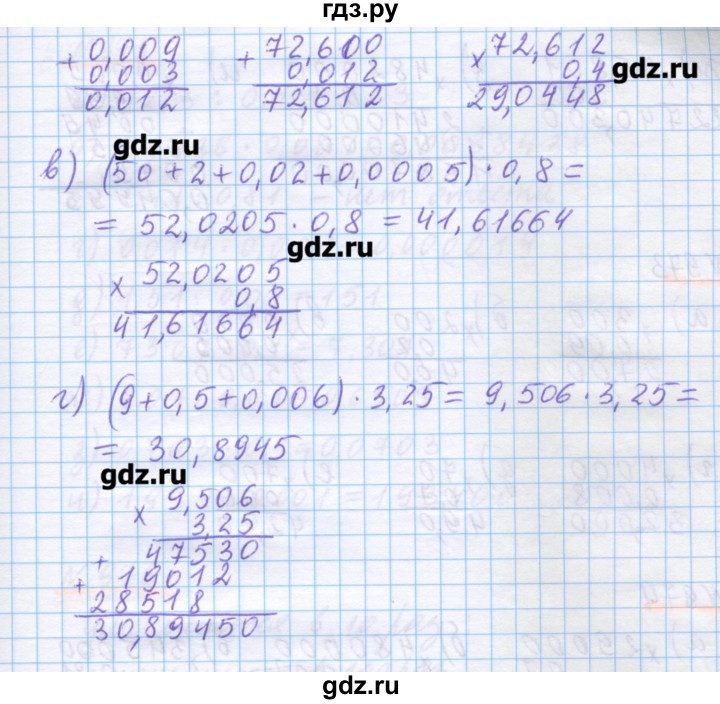 гдз.ру
+ 0,009
0,003
0,012
+ 72,600
0,012
72,612
× 72,612
0,4
29,0448
gdz.ru
gdz.ru
в) (50+2+0,02+0,0005)·0,8=
= 52,0205·0,8 = 41,61664
gdz.ru
× 52,0205
0,8
41,61664
г) (9+0,5+0,006)·3,25= 9,506·3,25=
= 30,8945
gdz.ru
× 9,506
3,25
+ 47530
+ 19012
28518
30,89450
gdz.ru